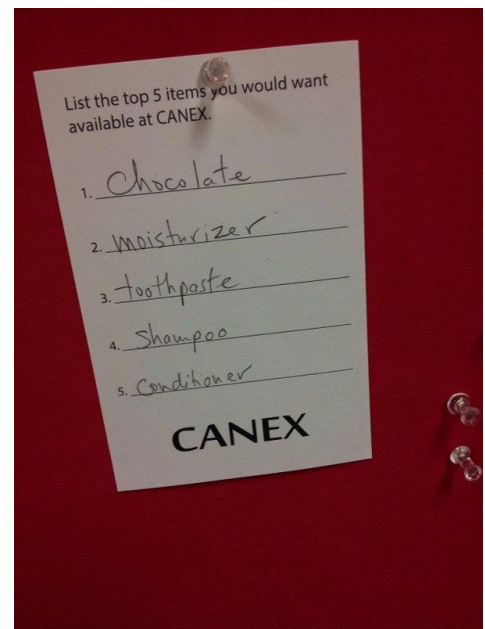 List the top 5 items you would want
available at CANEX.
1. Chocolate
2. moisturizer
3. toothpaste
4. Shampoo
5. Conditioner
CANEX